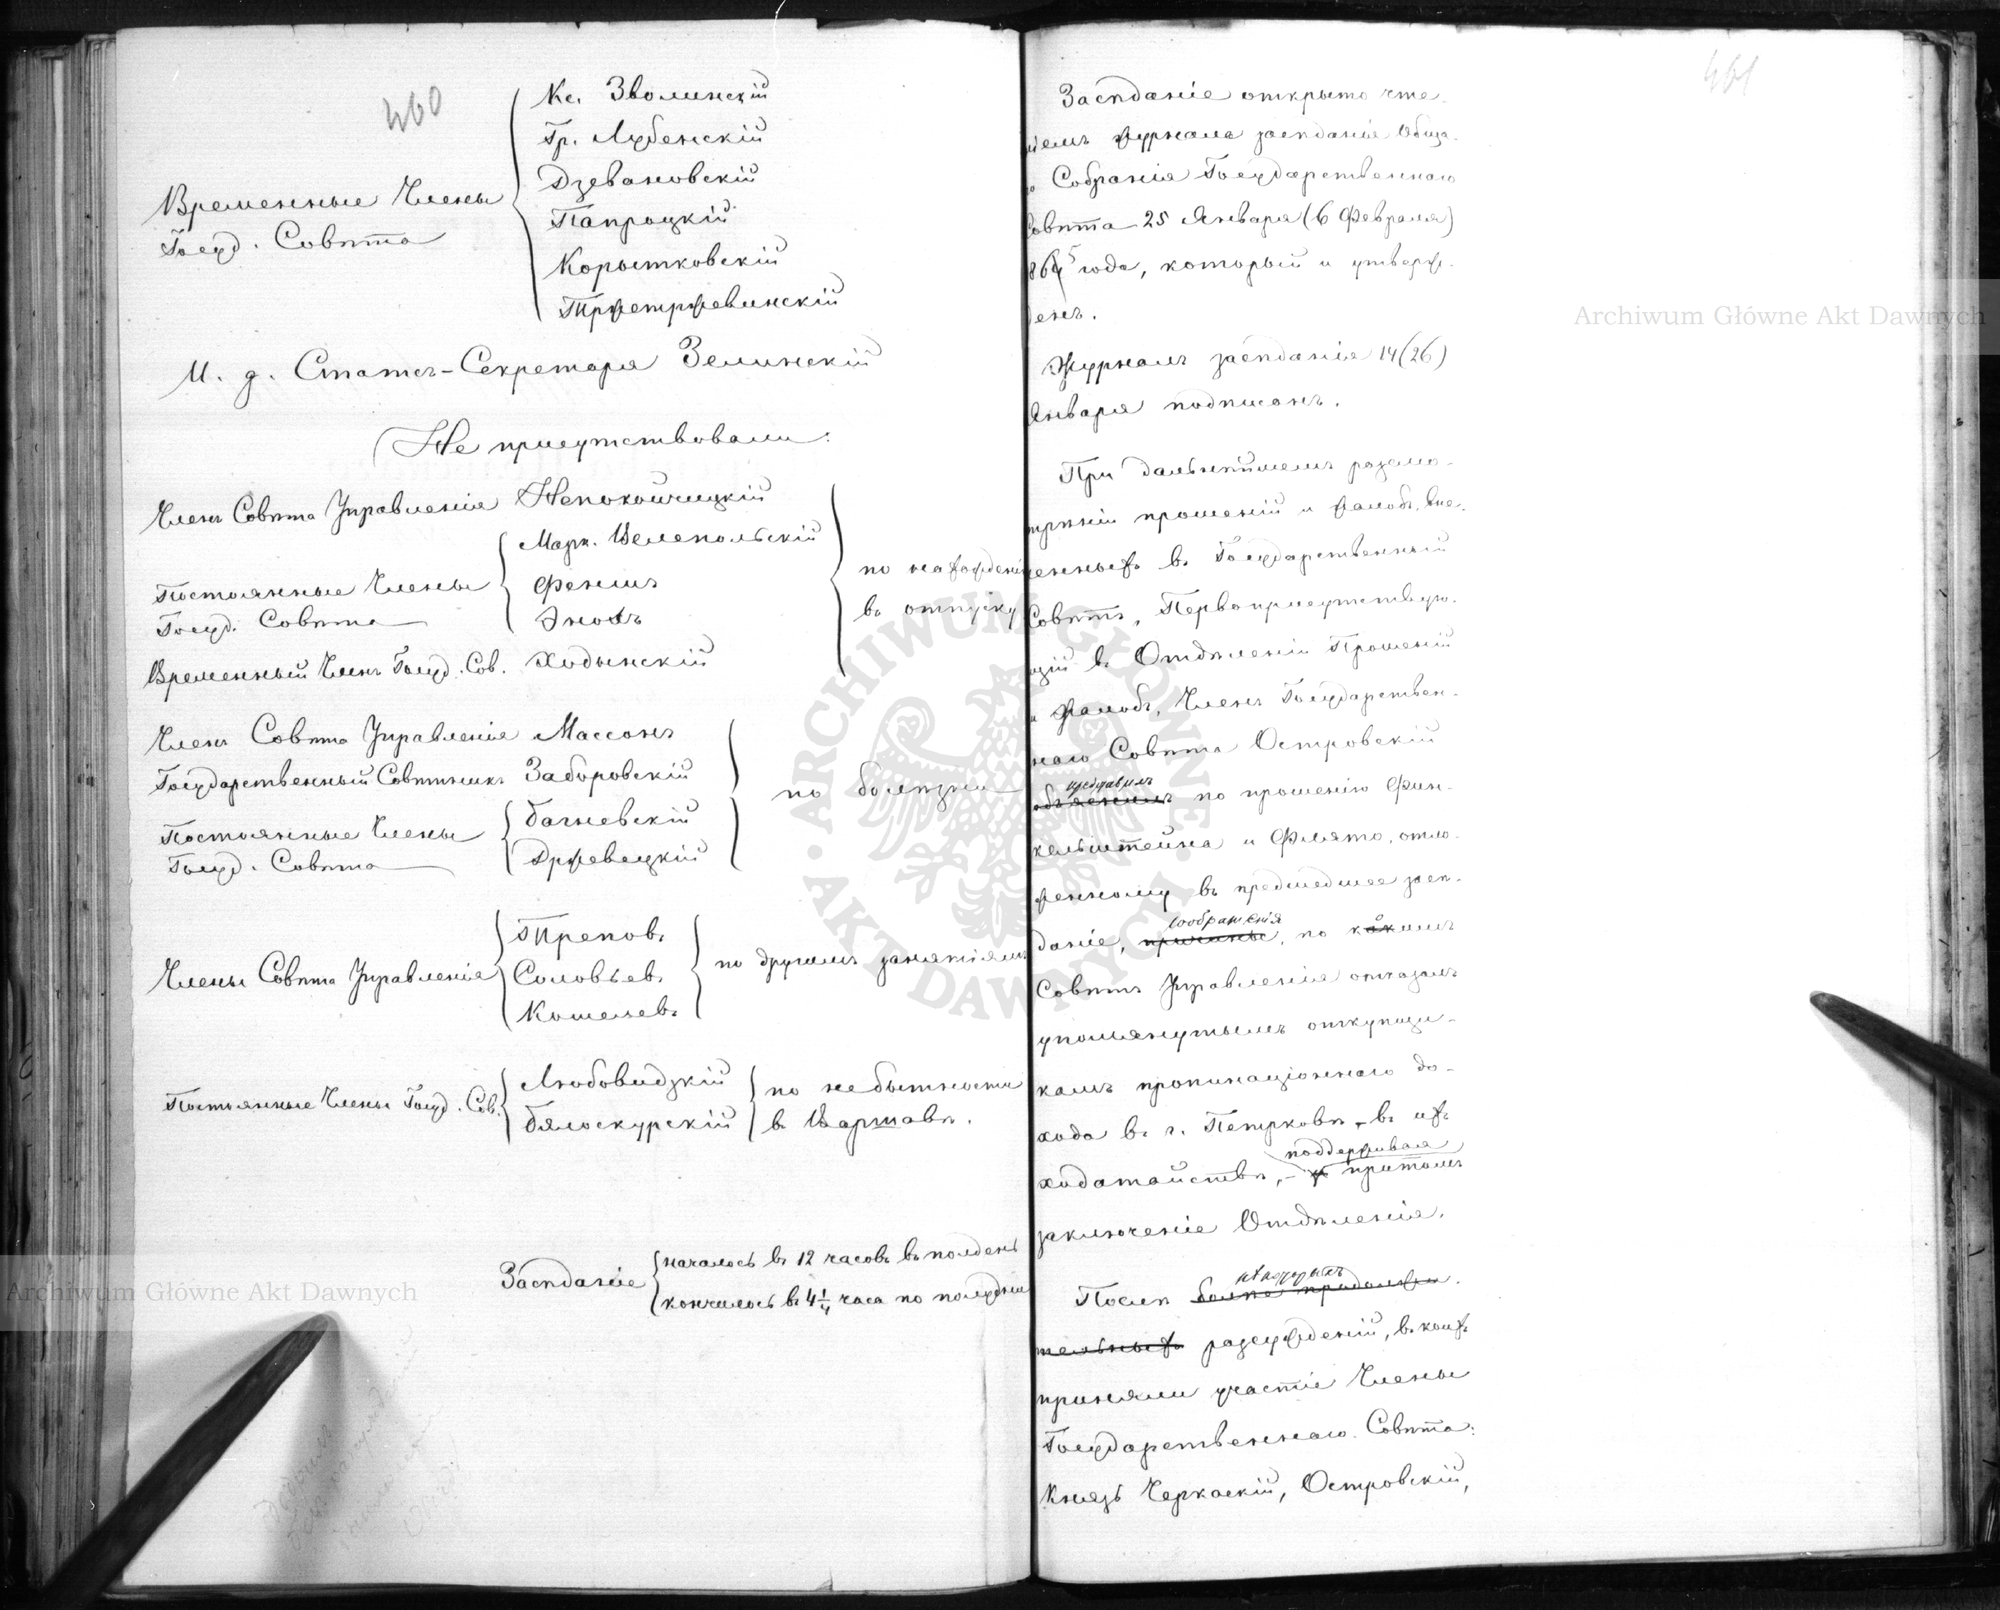 460
Временные Члены
Госуд. Совѣта
Кс. Зволинскій
Гр. Лубенскій
Дзевановскій
Папроцкій
Корытковскій
Тржетржевинскій
И. д. Статсъ-Секретаря Зелинскій
Не присутствовали:
Членъ Совѣта Управленія Непокойчицкій
Постоянные Члены
Госуд. Совѣта
Марк. Велепольскій
Феншъ
Энохъ
Временный Членъ Госуд. Сов. Ходынскій
по нахожденію
въ отпуску
Членъ Совѣта Управленія Массонъ
Государственный Совѣтникъ Заборовскій
Постоянные Члены
Госуд. Совѣта
Багневскій
Држевецкій
по болѣзни
Члены Совѣта Управленія
Треповъ
Соловьевъ
Кошелевъ
по другимъ занятіямъ
Постоянные Члены Госуд. Сов.
Любовидзкій
Бялоскурскій
по небытности
въ Варшавѣ.
Засѣданіе
началось въ 12 часовъ въ полдень
кончилось въ 4¼ часа по полудни
461
Засѣданіе открыто чте-
ніемъ журнала засѣданія Обща-
го Собранія Государственнаго
Совѣта 25 Января (6 Февраля)
1865 года, который и утверж-
денъ.
Журналъ засѣданія 14 (26)
Января подписанъ.
При дальнѣйшемъ разсмо-
трѣніи прошеній и жалобъ, вне-
сенныхъ въ Государственный
Совѣтъ, Первоприсутствую-
щій въ Отдѣленіи Прошеній
и жалобъ, Членъ Государствен-
наго Совѣта Островскій
представилъ
объяснилъ по прошенію Фин-
кельштейна и Флято, отло-
женному въ предшедшее засѣ-
соображенія
даніе, причины, по какимъ
Совѣтъ Управленія отказалъ
упомянутымъ откупщи-
камъ пропинаціоннаго до-
хода въ г. Петрковѣ, въ ихъ
поддерживая
ходатайствѣ, – притомъ
заключеніе Отдѣленія.
нѣкоторыхъ
Послѣ болѣе продолжи-
тельныхъ разсужденій, въ коихъ
приняли участіе Члены
Государственнаго Совѣта:
Князь Черкаскій, Островскій,
Archiwum Główne Akt Dawnych
Archiwum Główne Akt Dawnych
ARCHIWUM GŁÓWNE · AKT DAWNYCH ·